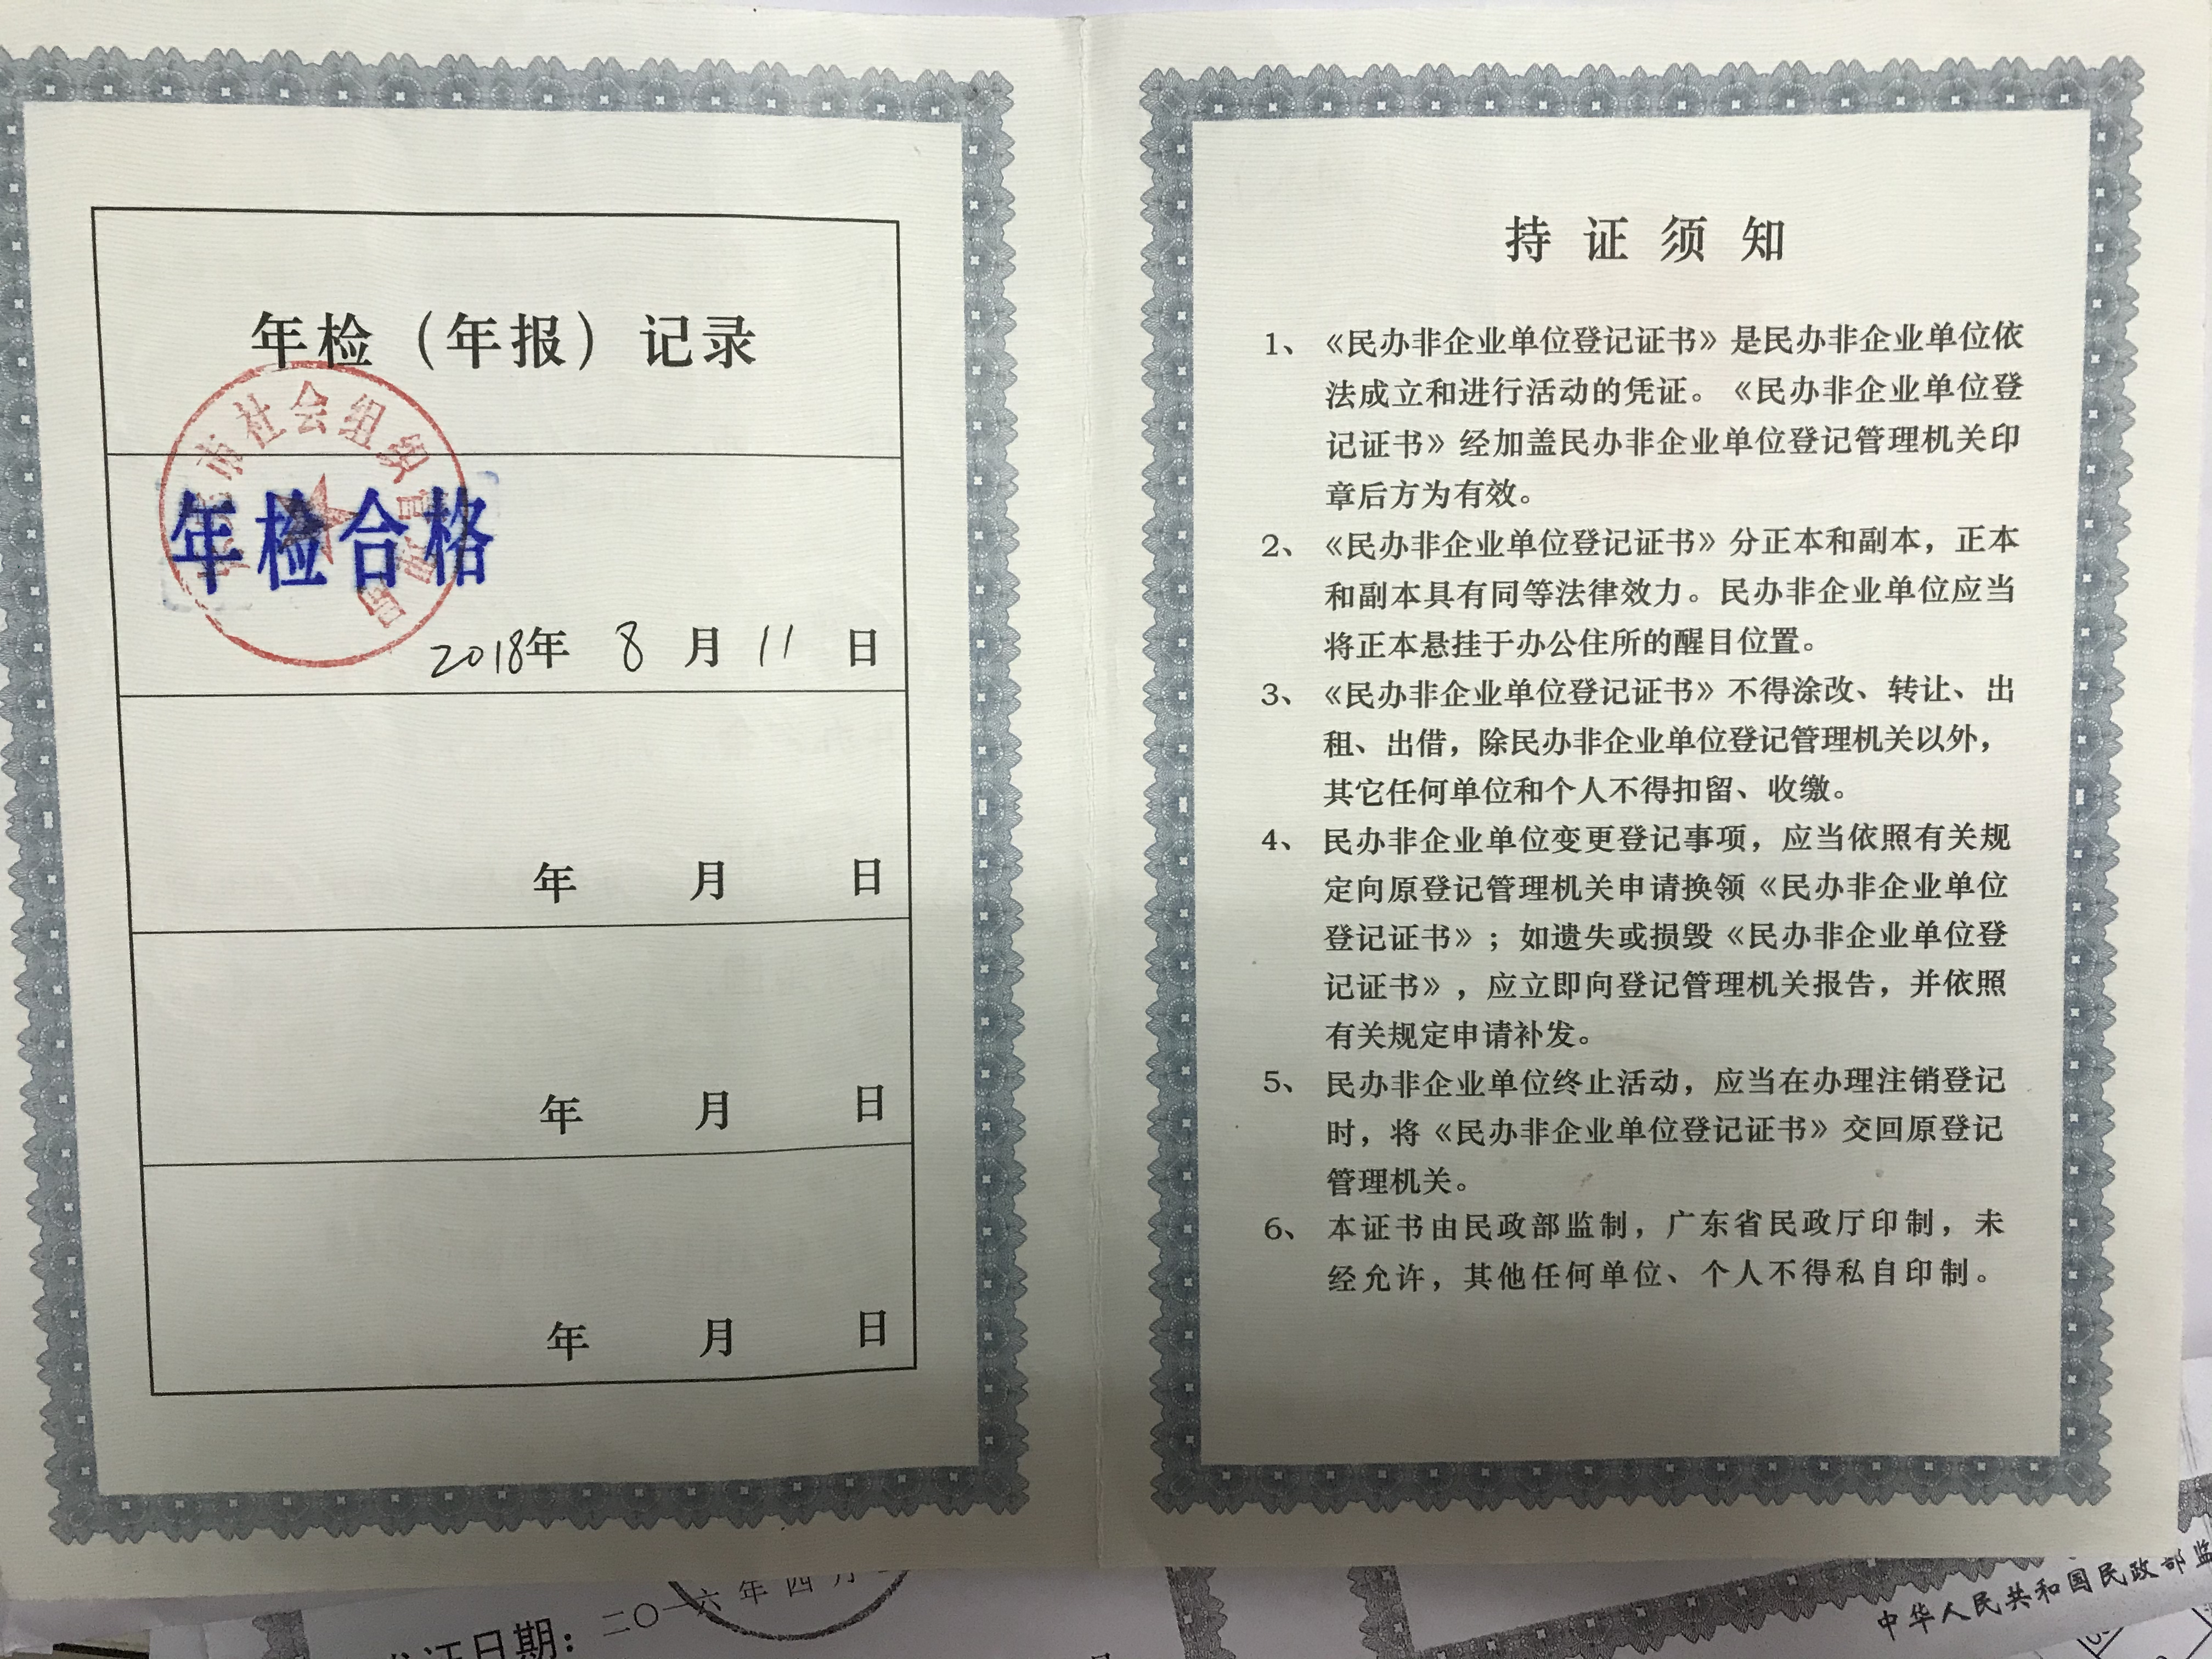 年检（年报）记录
市社会组织管理局
年检合格
2018年 8 月 11 日
年 月 日
年 月 日
年 月 日
持证须知
1、《民办非企业单位登记证书》是民办非企业单位依
法成立和进行活动的凭证。《民办非企业单位登
记证书》经加盖民办非企业单位登记管理机关印
章后方为有效。
2、《民办非企业单位登记证书》分正本和副本，正本
和副本具有同等法律效力。民办非企业单位应当
将正本悬挂于办公住所的醒目位置。
3、《民办非企业单位登记证书》不得涂改、转让、出
租、出借，除民办非企业单位登记管理机关以外，
其它任何单位和个人不得扣留、收缴。
4、民办非企业单位变更登记事项，应当依照有关规
定向原登记管理机关申请换领《民办非企业单位
登记证书》；如遗失或损毁《民办非企业单位登
记证书》，应立即向登记管理机关报告，并依照
有关规定申请补发。
5、民办非企业单位终止活动，应当在办理注销登记
时，将《民办非企业单位登记证书》交回原登记
管理机关。
6、本证书由民政部监制，广东省民政厅印制，未
经允许，其他任何单位、个人不得私自印制。
证日期：二〇一六年四月
中华人民共和国民政部监